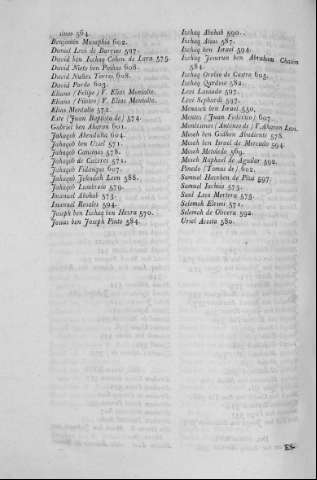 nano 564.
Benjamin Musaphia 602.
Daniel Levi de Barrios 597.
David ben Ischaq Cohen de Lara 575.
David Nieto ben Pinhas 608.
David Nuñes Torres 608.
David Pardo 605.
Eliano (Felipe) V. Eleas Montalto.
Eliano (Filoteo) V. Eleas Montalto.
Elias Montalto 572.
Este (Juan Baptista de) 574.
Gabriel ben Aharon 601.
Jahaqob Abendaña 604.
Jahaqob ben Uziel 571.
Jahaqob Cansinas 578.
Jahaqob de Caceres 571.
Jahaqob Fidanque 607.
Jahaqob Jehudah Leon 588.
Jahaqob Lumbroso 579.
Imanuel Aboab 573.
Imanuel Rosales 594.
Joseph ben Ischaq ben Hesra 570.
Josias ben Joseph Pinto 584.
Ischaq Aboab 590.
Ischaq Atias 587.
Ischaq ben Israel 594.
Ischaq Jesurun ben Abraham Chaiim
584.
Ischaq Orobio de Castro 605.
Ischaq Qardoso 582.
Levi Laniado 597.
Levi Sephardi 597.
Menaseh ben Israel 550.
Montes (Juan Federico) 607.
Montesinos (Antonio de) V. Aharon Levi.
Moseh ben Gidhon Abudiente 578.
Moseh ben Israel de Mercado 594.
Moseh Metoledo 569.
Moseh Raphael de Aguilar 592.
Pinedo (Tomas de) 602.
Samuel Hacohen de Pisa 597.
Samuel Jachia 573.
Saul Levi Mortera 575.
Selemoh Eleoni 572.
Selemoh de Olivera 592.
Uriel Acosta 580.